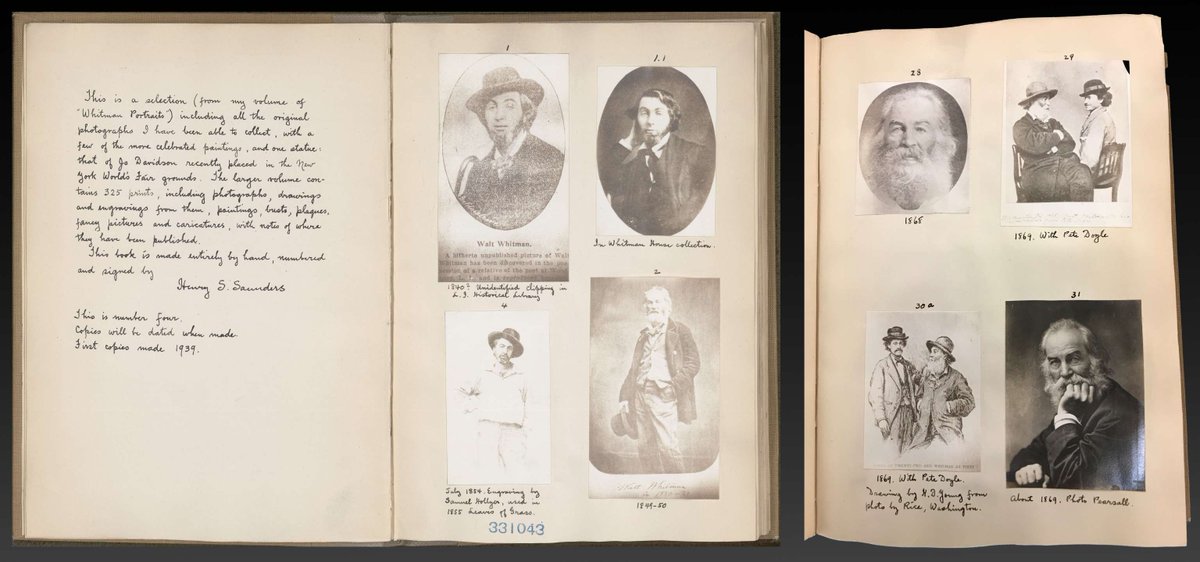 This is a selection (from my volume of
"Whitman Portraits") including all the original
photographs I have been able to collect, with a
few of the more celebrated paintings, and one statue:
that of Jo Davidson recently placed in the New
York World's Fair grounds. The larger volume con-
tains 325 prints, including photographs, drawings
and engravings from them, paintings, busts, plaques,
fancy pictures and caricatures, with notes of where
they have been published.
This book is made entirely by hand, numbered
and signed by
Henry S. Saunders
This is number four.
Copies will be dated when made.
First copies made 1939.
1
Walt Whitman.
A hitherto unpublished picture of Walt
Whitman has been discovered in the pos-
session of a relative of the poet at
1840? Unidentified clipping in
L. I. Historical Library
1.1
In Whitman House collection.
4
July 1854. Engraving by
Samuel Hollyer, used in
1855 Leaves of Grass.
2
Walt Whitman
1849-50
331043
28
1868
29
1869. With Pete Doyle
30a
1869. With Pete Doyle.
Drawing by H. D. Young from
photo by Rice, Washington.
31
About 1869. Photo Pearsall.